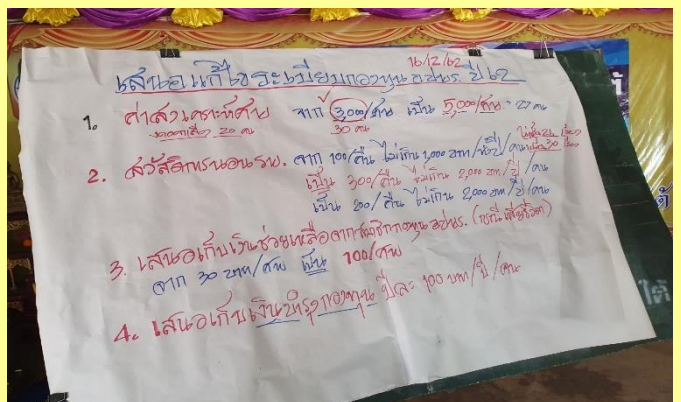 16/2/62
เสนอแก้ไขระเบียบกองทุน อปพร. ปี 62
1. ค่าสงเคราะห์ศพ จาก 3,000/ศพ เป็น 5,000/ศพ
20 คน
30 คน
2. สวัสดิการนอนรพ. จาก 100/คืน ไม่เกิน 1,000 บาท/ปี/คน
เป็น 300/คืน ไม่เกิน 2,000 บาท/ปี/คน
เป็น 200/คืน ไม่เกิน 2,000 บาท/ปี/คน
3. เสนอเก็บเงินช่วยเหลือจากสมาชิกกองทุน อปพร. (กรณีเสียชีวิต)
จาก 30 บาท/ศพ เป็น 100/ศพ
4. เสนอเก็บเงินบำรุงกองทุน ปีละ 100 บาท/ปี/คน
ใต้